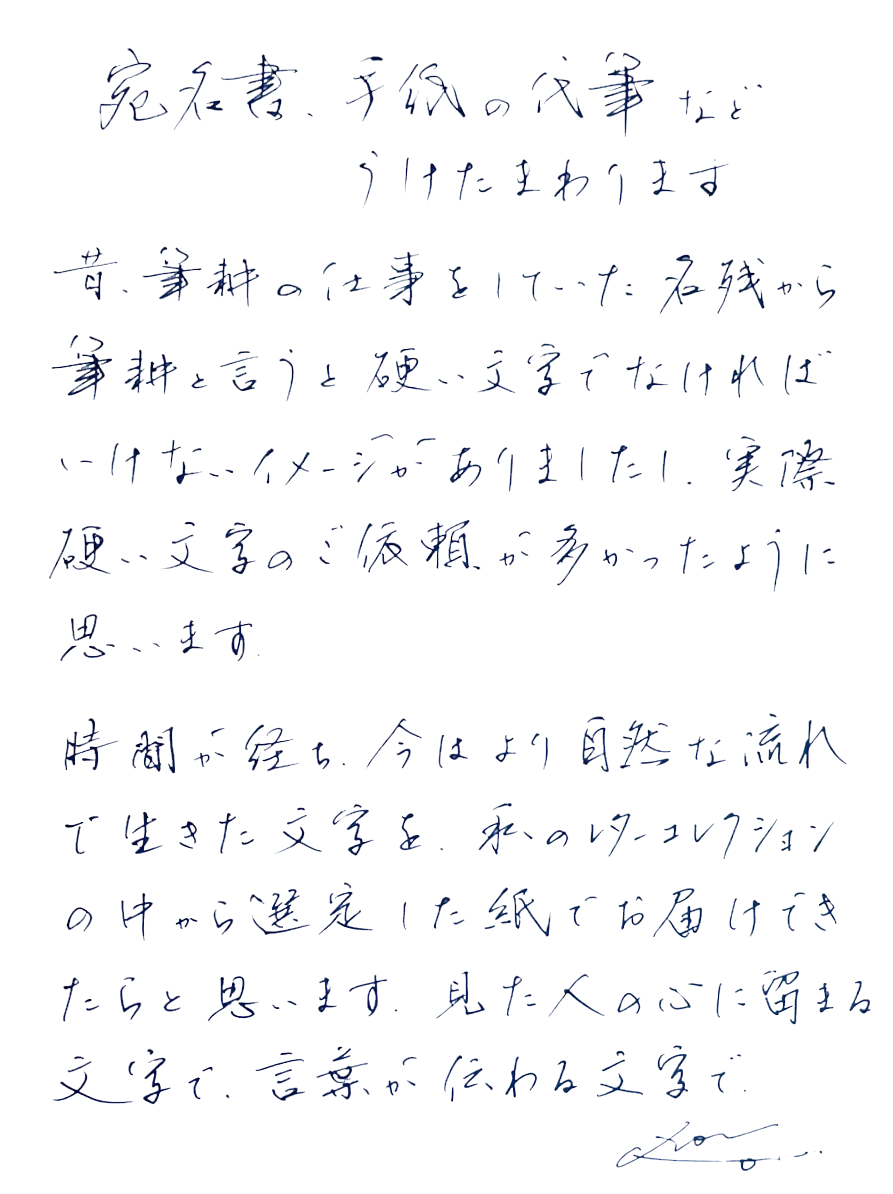 宛名書、手紙の代筆など
うけたまわります
昔、筆耕の仕事をしていた名残から
筆耕と言うと硬い文字でなければ
いけないイメージがありましたし、実際
硬い文字のご依頼が多かったように
思います。
時間が経ち、今はより自然な流れ
で生きた文字を、私のレターコレクション
の中から選定した紙でお届けでき
たらと思います。見た人の心に留まる
文字で、言葉が伝わる文字で。